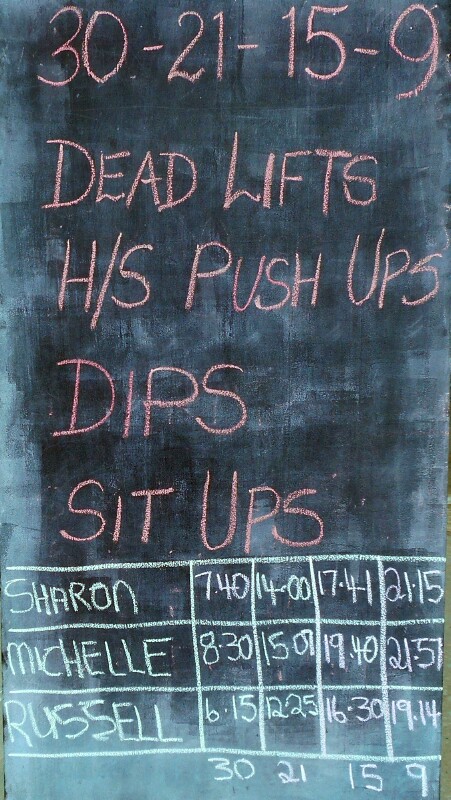 30-21-15-9
DEAD LIFTS
H/S PUSH UPS
DIPS
SIT UPS
SHARON 7.40 14.00 17.41 21.15
MICHELLE 8.30 15.07 19.40 21.57
RUSSELL 6.15 12.25 16.30 19.14
30 21 15 9